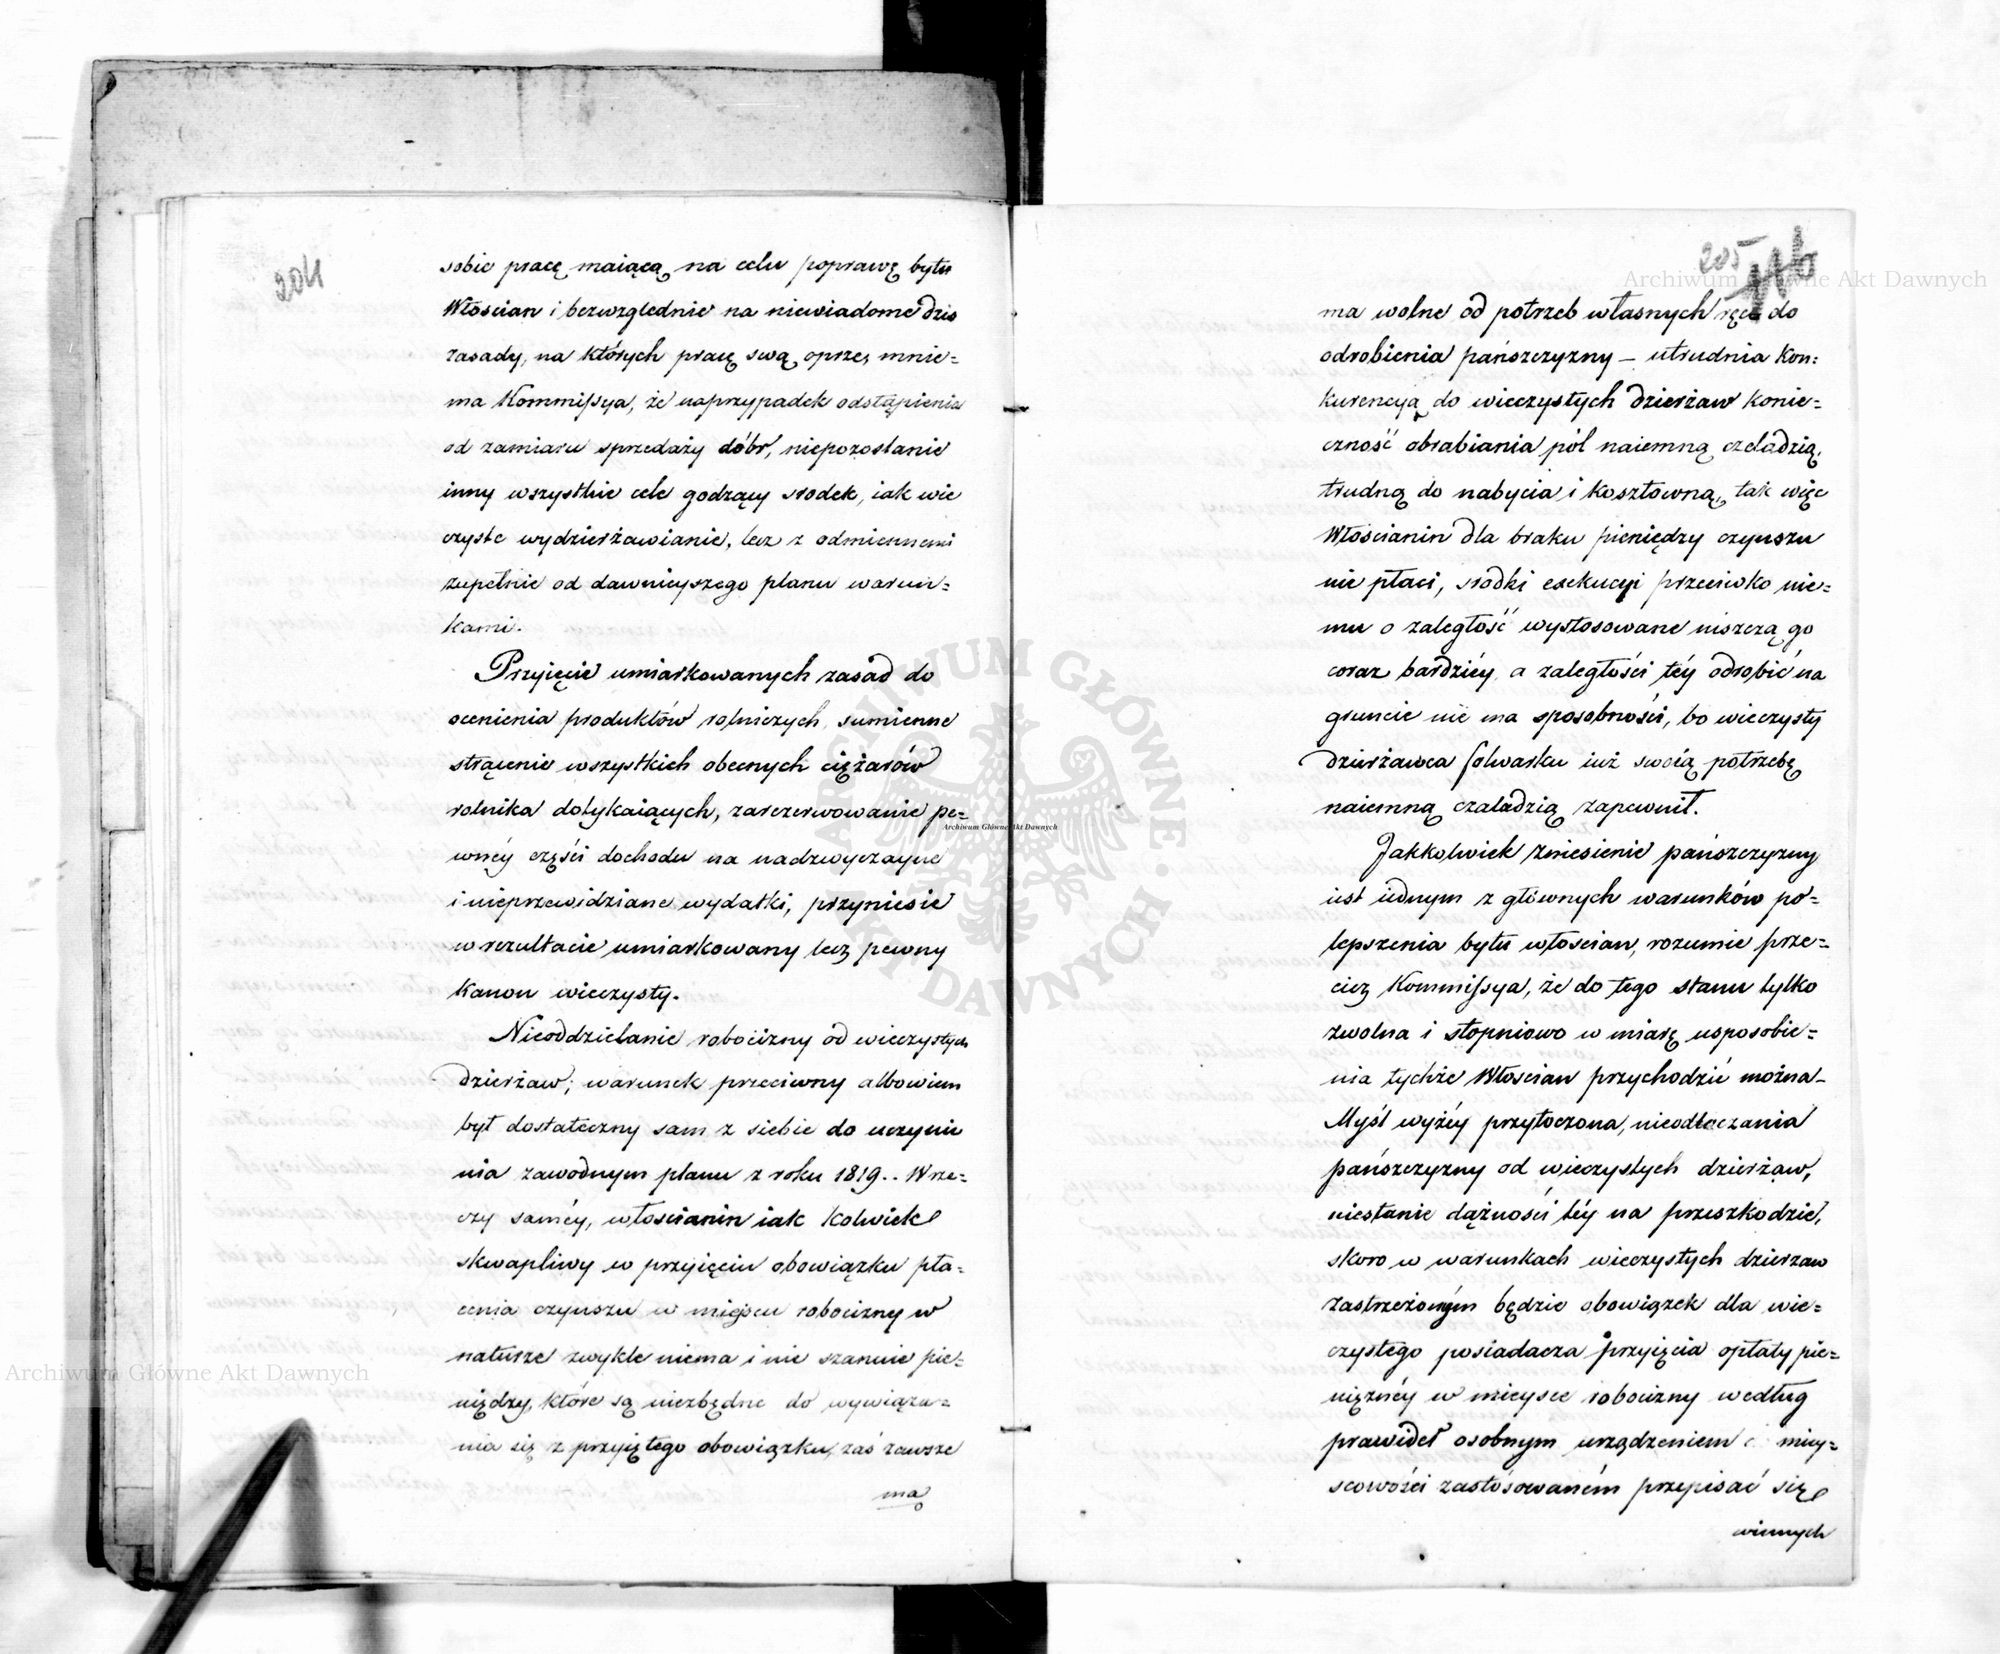 204
sobie pracę maiącą na celu poprawę bytu
Włoscian i bezwzględnie na niewiadome dzis
zasady, na których pracę swą oprze, mnie=
ma Kommissya, że naprzypadek odstąpienia
od zamiaru sprzedaży dóbr, niepozostanie
inny wszystkie cele godzący srodek, iak wie
czyste wydzierżawianie, lecz z odmiennemi
zupełnie od dawnieyszego planu warun=
kami.
Przyięcie umiarkowanych zasad do
ocenienia produktów rolniczych, sumienne
strącenie wszystkich obecnych ciężarów
rolnika dotykaiących, zarezerwowanie pe=
wnéy części dochodu na nadzwyczayne
i nieprzewidziane wydatki, przyniesie
w rezultacie umiarkowany lecz pewny
Kanon wieczysty.
Nieoddzielanie robocizny od wieczystych
dzierżaw; warunek przeciwny albowiem
był dostateczny sam z siebie do uczynie
nia zawodnym planu z roku 1819.. W rze=
czy saméy, włościanin iak kolwiek
skwapliwy w przyięciu obowiązku pła=
cenia czynszu w miejscu robocizny w
naturze zwykle niema i nie szanuie pie=
niędzy, które są niezbędne do wywiąza=
nia się z przyiętego obowiązku, zaś zawsze
ma
205
ma wolne od potrzeb własnych ręce do
odrobienia pańszczyzny — utrudnia Kon=
kurencyą do wieczystych dzierżaw konie=
czność obrabiania pól naiemną czeladzią,
trudną do nabycia i kosztowną, tak więc
Włościanin dla braku pieniędzy czynszu
nie płaci, srodki exekucyi przeciwko nie=
mu o zaległość wystosowane niszczą go
coraz bardziéy a zaległości téy odrobić na
gruncie nie ma sposobności, bo wieczysty
dzierżawca folwarku iuż swoią potrzebę
naiemną czeladzią zapewnił.
Jakkolwiek zniesienie pańszczyzny
iest iednym z głównych warunków po=
lepszenia bytu włoscian, rozumie prze=
cież Kommissya, że do tego stanu tylko
zwolna i stopniowo w miarę usposobie=
nia tychże Włoscian przychodzić można —
Myśl wyżéy przytoczona, nieodłączania
pańszczyzny od wieczystych dzierżaw,
niestanie dążności téy na przeszkodzie,
skoro w warunkach wieczystych dzierzaw
zastrzeżonym będzie obowiązek dla wie=
czystego posiadacza przyięcia opłaty pie=
niężnéy w mieysce robocizny według
prawideł osobnym urządzeniem miey=
scowości zastósowaném przepisać się
winnych
Archiwum Główne Akt Dawnych
Archiwum Główne Akt Dawnych
Archiwum Główne Akt Dawnych
ARCHIWUM GŁÓWNE AKT DAWNYCH